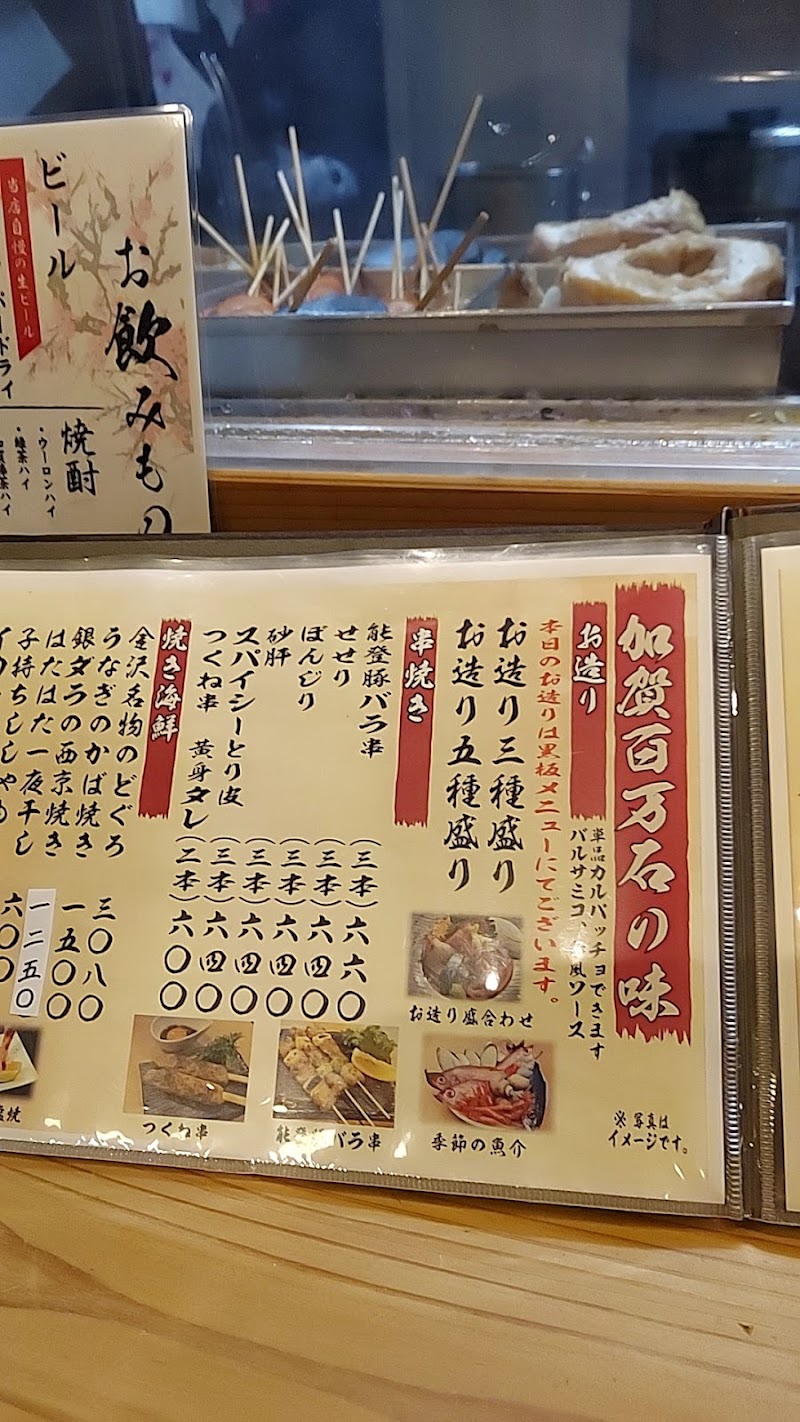 お飲みもの
ビール
当店自慢の生ビール
ドライ
焼酎
・ウーロンハイ
・緑茶ハイ
加賀棒茶ハイ
加賀百万石の味
お造り
単品カルパッチョできます
バルサミコ、
風ソース
本日のお造りは黒板メニューにてございます。
お造り三種盛り
お造り五種盛り
串焼き
能登豚バラ串 (三本) 六六〇
せせり (三本) 六四〇
ぼんじり (三本) 六四〇
砂肝 (三本) 六四〇
スパイシーとり皮 (三本) 六四〇
つくね串 黄身タレ (二本) 六〇〇
焼き海鮮
金沢名物のどぐろ 三〇八〇
うなぎのかば焼き 一五〇〇
銀ダラの西京焼き 一二五〇
はたはた一夜干し 六〇〇
子持ちししゃも
お造り盛合わせ
季節の魚介
バラ串
つくね串
塩焼
※写真は
イメージです。